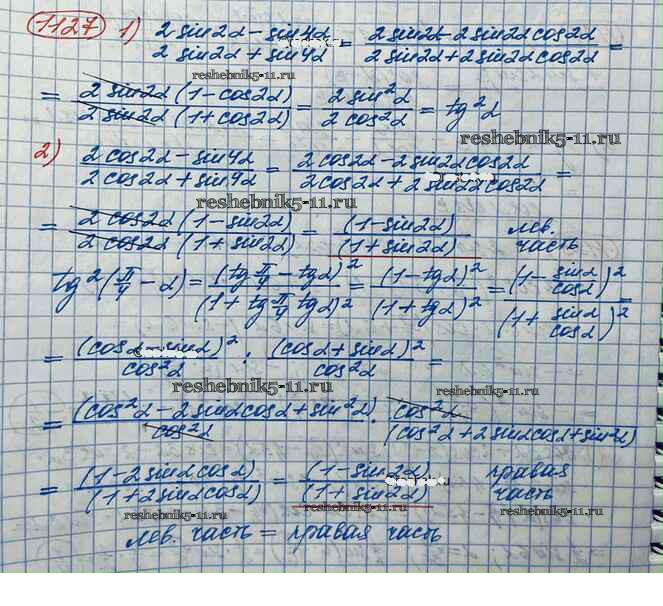 1127 1) (2 sin2α - sin4α)/(2 sin2α + sin4α) = (2 sin2α - 2 sin2α cos2α)/(2 sin2α + 2 sin2α cos2α) =
reshebnik5-11.ru
= (2 sin2α (1 - cos2α))/(2 sin2α (1 + cos2α)) = (2 sin²α)/(2 cos²α) = tg²α
reshebnik5-11.ru
2) (2 cos2α - sin4α)/(2 cos2α + sin4α) = (2 cos2α - 2 sin2α cos2α)/(2 cos2α + 2 sin2α cos2α) =
reshebnik5-11.ru
= (2 cos2α (1 - sin2α))/(2 cos2α (1 + sin2α)) = (1 - sin2α)/(1 + sin2α) лев. часть
tg²(π/4 - α) = (tg π/4 - tgα)²/(1 + tg π/4 tgα)² = (1 - tgα)²/(1 + tgα)² = (1 - sinα/cosα)²/(1 + sinα/cosα)² =
= (cosα - sinα)²/cos²α : (cosα + sinα)²/cos²α =
reshebnik5-11.ru reshebnik5-11.ru
= (cos²α - 2 sinα cosα + sin²α)/cos²α · cos²α/(cos²α + 2 sinα cosα + sin²α)
= (1 - 2 sinα cosα)/(1 + 2 sinα cosα) = (1 - sin2α)/(1 + sin2α) правая часть
reshebnik5-11.ru reshebnik5-11.ru reshebnik5-11.ru
лев. часть = правая часть